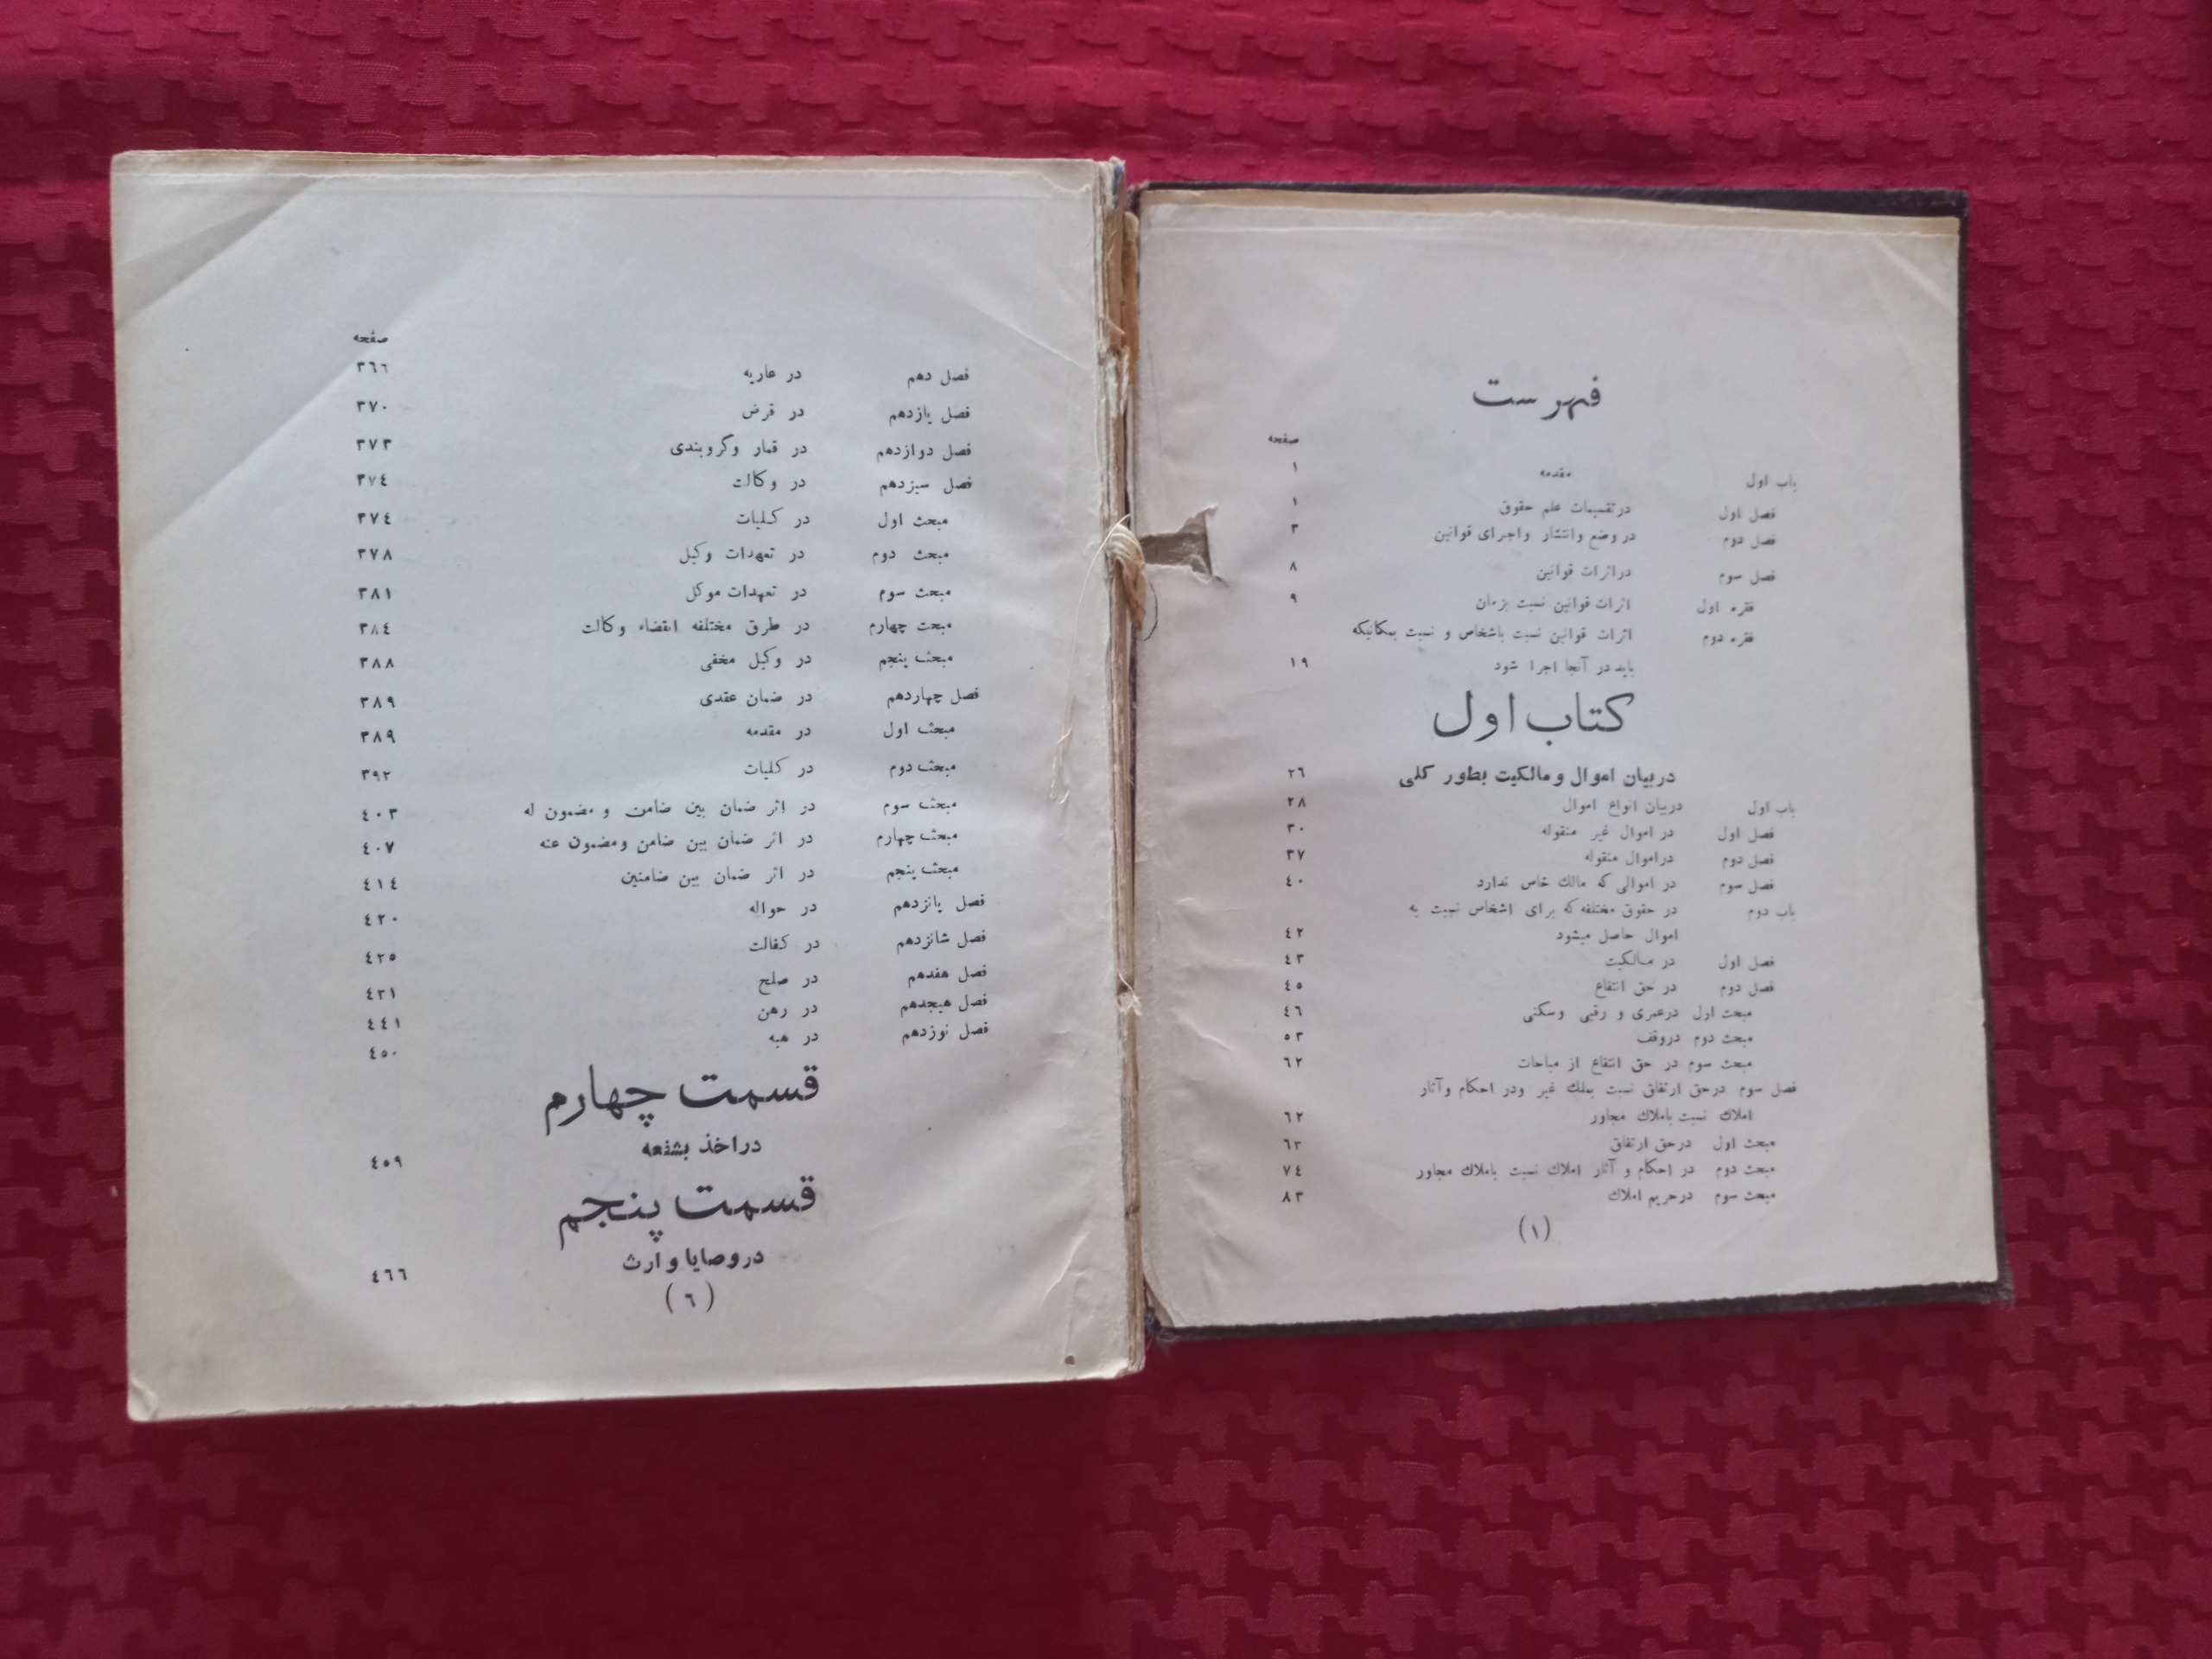 فهرست
صفحه
باب اول مقدمه ۱
فصل اول در تقسیمات علم حقوق ۱
فصل دوم در وضع وانتشار واجرای قوانین ۳
فصل سوم در اثرات قوانین ۸
فقره اول اثرات قوانین نسبت بزمان ۹
فقره دوم اثرات قوانین نسبت باشخاص و نسبت بمکانیکه
باید در آنجا اجرا شود ۱۹
کتاب اول
در بیان اموال و مالکیت بطور کلی ۲٦
باب اول دربیان انواع اموال ۲۸
فصل اول در اموال غیر منقوله ۳۰
فصل دوم در اموال منقوله ۳۷
فصل سوم در اموالی که مالك خاص ندارد ٤۰
باب دوم در حقوق مختلفه که برای اشخاص نسبت به
اموال حاصل میشود ٤۲
فصل اول در مالکیت ٤۳
فصل دوم در حق انتفاع ٤٥
مبحث اول در عمری و رقبی وسکنی ٤٦
مبحث دوم در وقف ٥۳
مبحث سوم در حق انتفاع از مباحات ٦۲
فصل سوم در حق ارتفاق نسبت بملك غیر ودر احکام وآثار
املاك نسبت باملاك مجاور ٦۲
مبحث اول در حق ارتفاق ٦۳
مبحث دوم در احکام و آثار املاك نسبت باملاك مجاور ۷٤
مبحث سوم در حریم املاك ۸۳
(۱)
صفحه
فصل دهم در عاریه ۳٦٦
فصل یازدهم در قرض ۳۷۰
فصل دوازدهم در قمار وگروبندی ۳۷۳
فصل سیزدهم در وکالت ۳۷٤
مبحث اول در کلیات ۳۷٤
مبحث دوم در تعهدات وکیل ۳۷۸
مبحث سوم در تعهدات موکل ۳۸۱
مبحث چهارم در طرق مختلفه انقضاء وکالت ۳۸٤
مبحث پنجم در وکیل مخفی ۳۸۸
فصل چهاردهم در ضمان عقدی ۳۸۹
مبحث اول در مقدمه ۳۸۹
مبحث دوم در کلیات ۳۹۲
مبحث سوم در اثر ضمان بین ضامن و مضمون له ٤۰۳
مبحث چهارم در اثر ضمان بین ضامن ومضمون عنه ٤۰۷
مبحث پنجم در اثر ضمان بین ضامنین ٤۱٤
فصل پانزدهم در حواله ٤۲۰
فصل شانزدهم در کفالت ٤۲٥
فصل هفدهم در صلح ٤۳۱
فصل هیجدهم در رهن ٤٤۱
فصل نوزدهم در هبه ٤٥۰
قسمت چهارم
در اخذ بشفعه ٤٥۹
قسمت پنجم
در وصایا و ارث ٤٦٦
(٦)